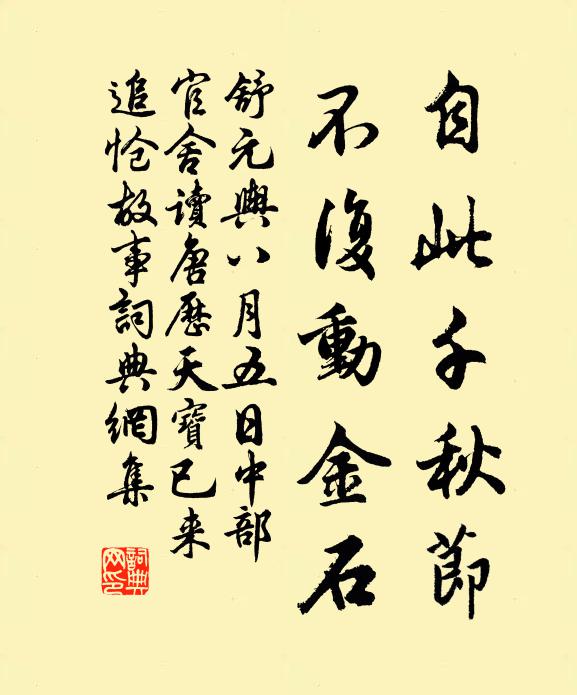 自此千秋節
不復動金石
舒元輿八月五日中部
官舍讀唐歷天寶已来
追愴故事詞典網集
詞典网印